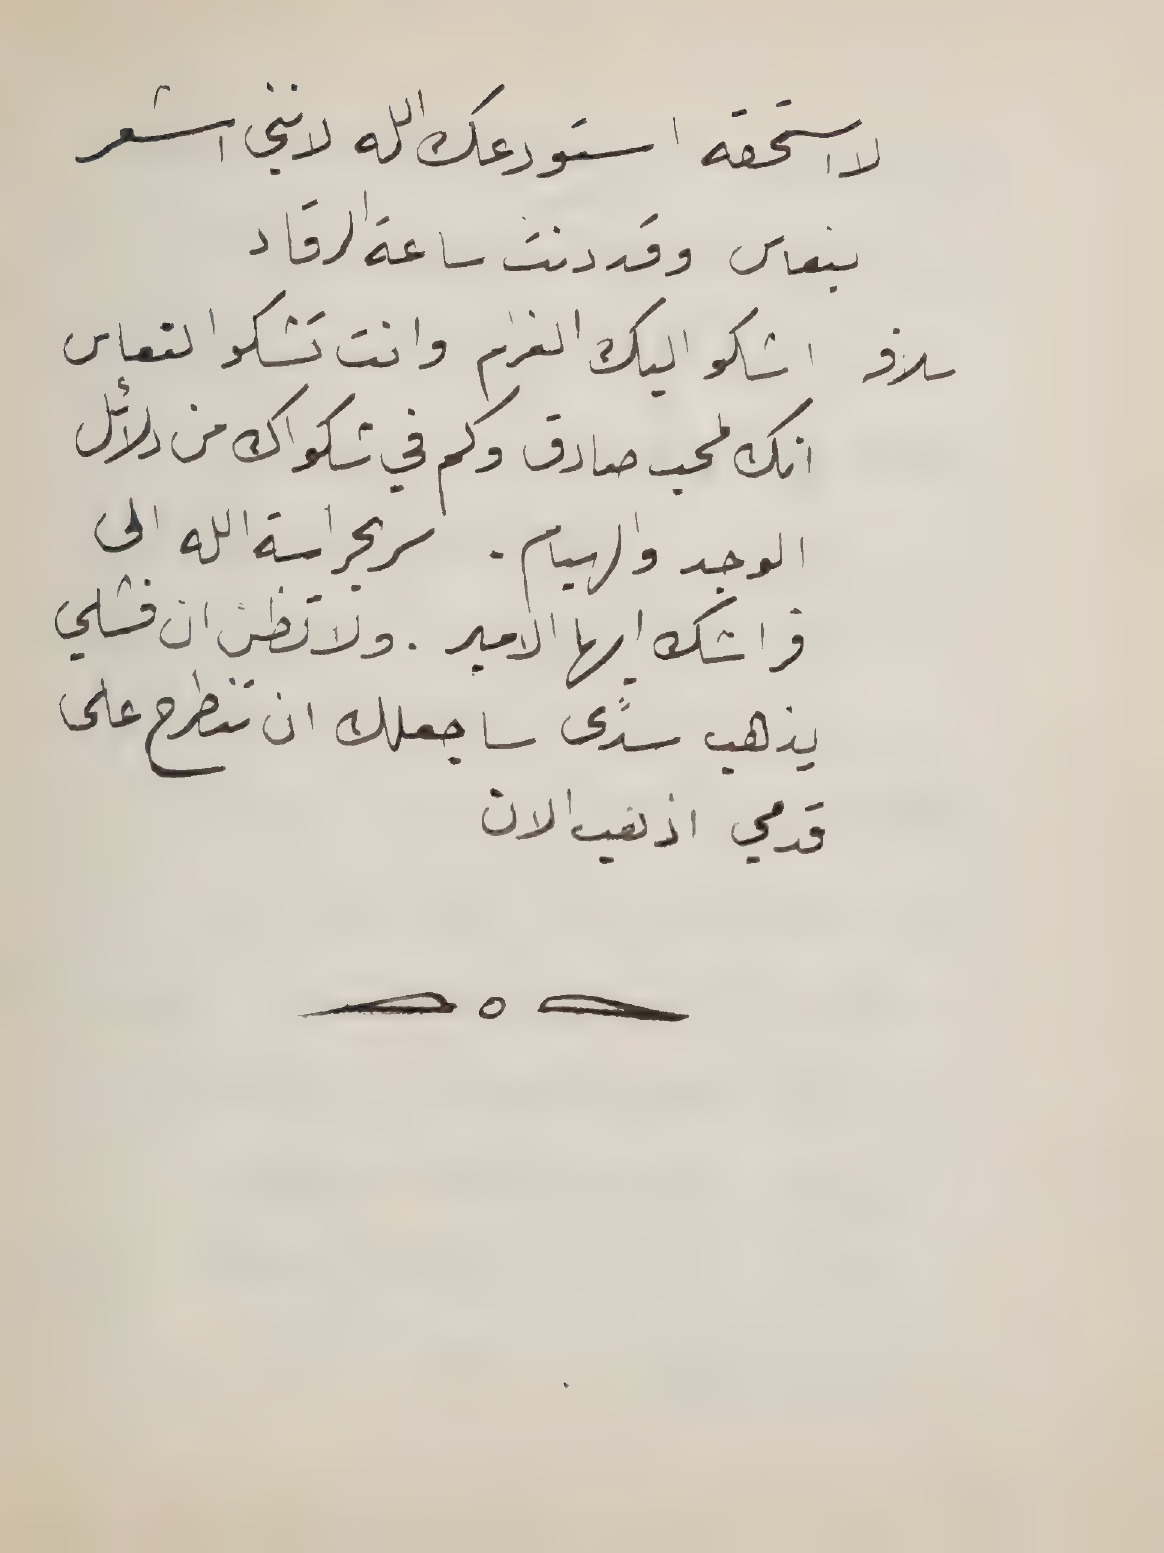 لا استحقه استودعك الله لانني اشعر
بنعاس وقد دنت ساعة الرقاد
سلافـ اشكو اليك الغرام وانت تشكو النعاس
انك لمحب صادق وكم في شكواك من دلائل
الوجد والهيام. سر بحراسة الله الى
فراشك ايها الامير. ولا تظن ان فشلي
يذهب سدًى ساجعلك ان تنطرح على
قدمي اذهب الان